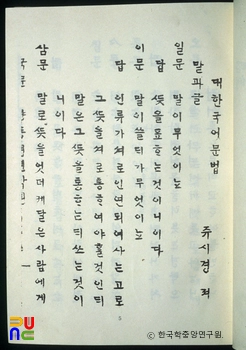 대한국어문법
쥬시경 져
말과글
일문 말이무엇이뇨
답 뜻을표하는것이니이다
이문 말이쓸되가무엇이뇨
답 인류가셔로인연되여사는고로
그뜻을셔로통하여야홀것인되
말은그뜻을통하는되쓰는것이
니이다
삼문 말로뜻을엇더케달은사람에게
5
© 한국학중앙연구원